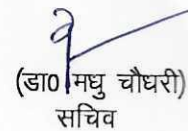 (डा० मधु चौधरी)
सचिव